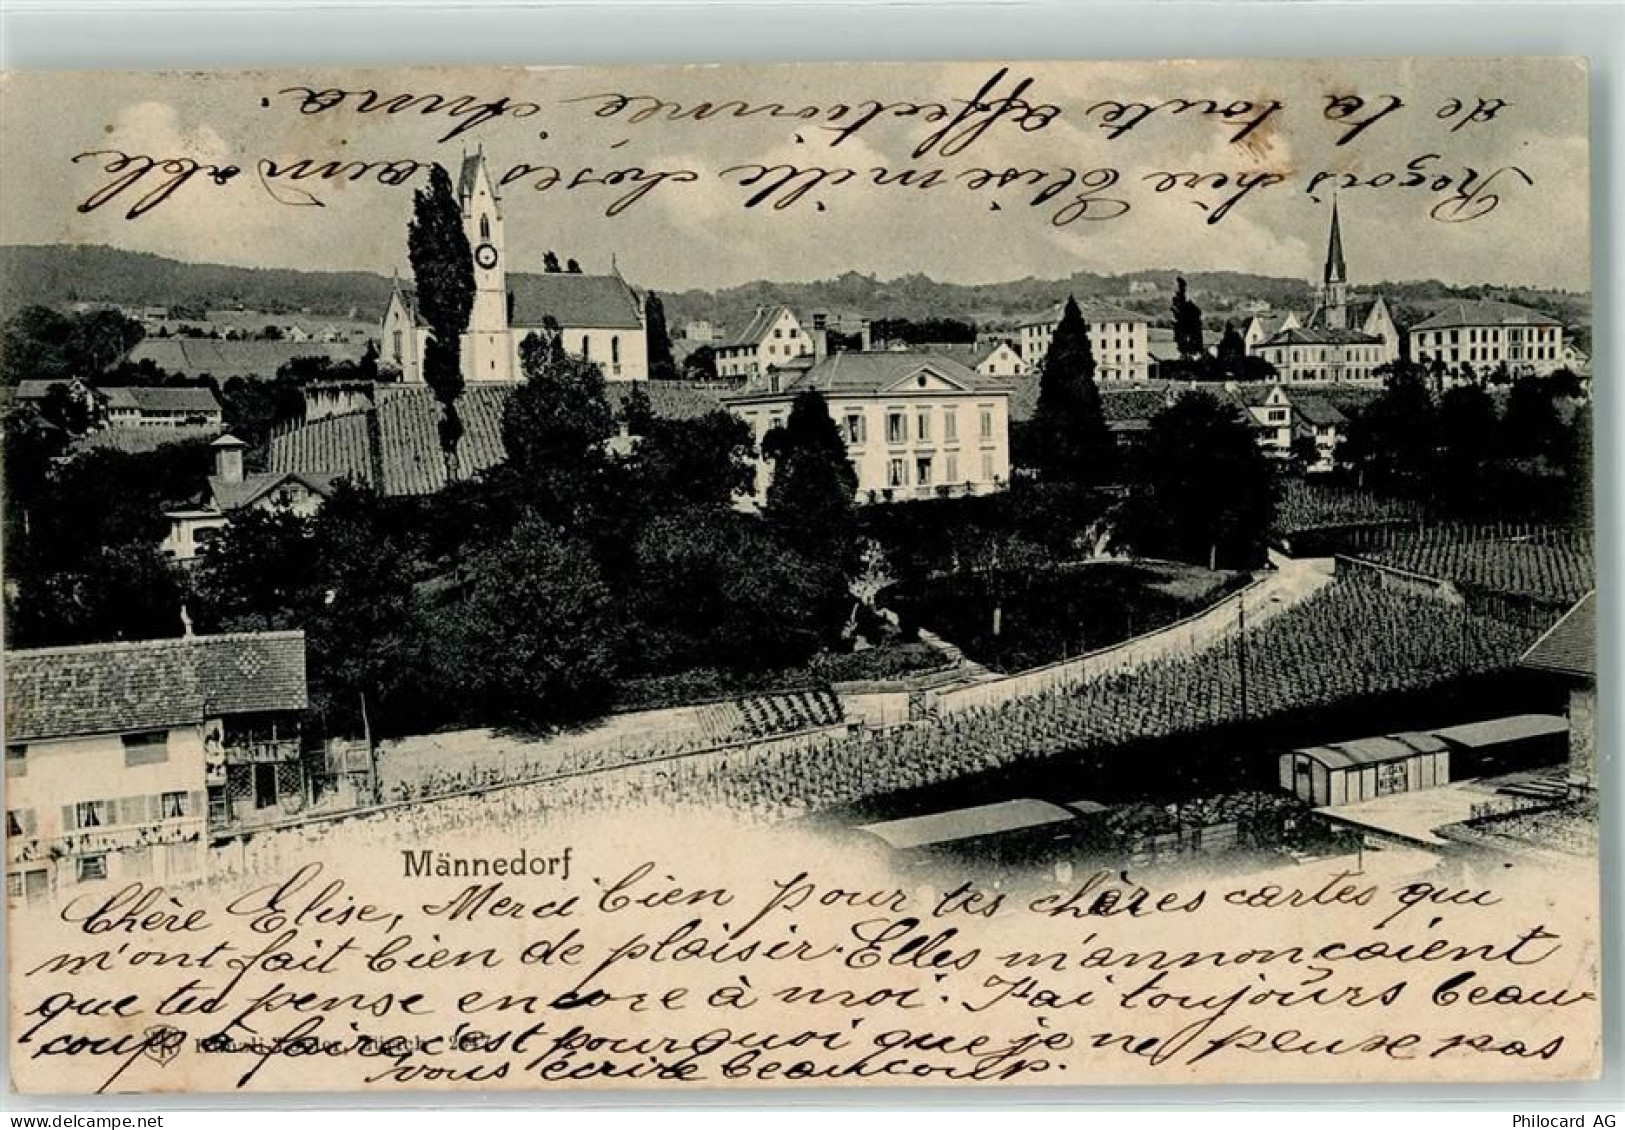 Männedorf
Chère Elise, Merci bien pour tes chères cartes qui
m'ont fait bien de plaisir. Elles m'annonçaient
que tu pense encore à moi. J'ai toujours beau-
coup à faire c'est pourquoi que je ne peuxe pas
vous écrire beaucoup.
Reçois chère Elise mille choses aimable
de la toute affectionnée Anna.
Philocard AG